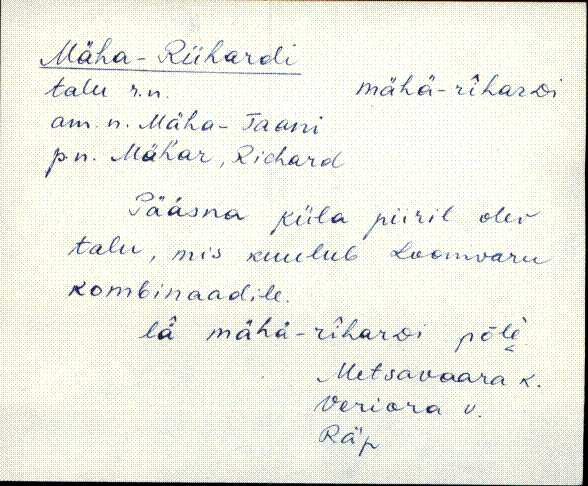 Mäha-Riihardi
talu r.n. mähä-rîharDi
am. n. Mäha-Jaani
p.n. Mähar, Richard
Pääsna küla piiril olev
talu, mis kuulub Loomvaru
kombinaadile.
lâ mähä-rîharDi põlè
Metsavaara k.
Veriora v.
Räp